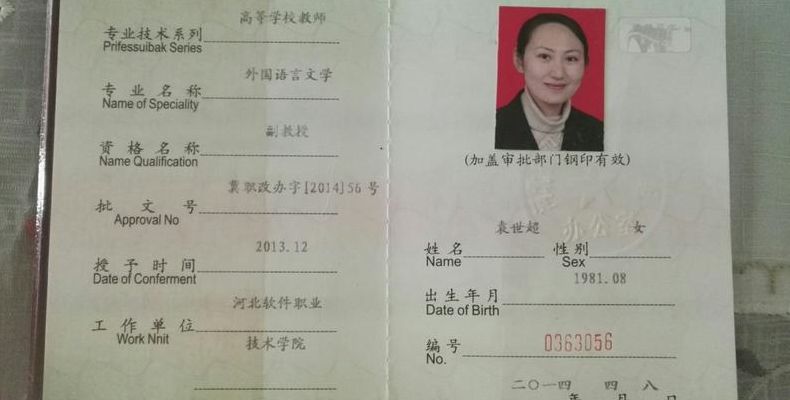 高等学校教师
专业技术系列
Prifessuibak Series
外国语言文学
专业名称
Name of Speciality
副教授
资格名称
Name Qualification
冀职改办字[2014]56号
批文号
Approval No
2013.12
授予时间
Date of Conferment
河北软件职业
工作单位
Work Nnit
技术学院
(加盖审批部门钢印有效)
办公室
袁世超 女
姓名 性别
Name Sex
1981.08
出生年月
Date of Birth
编号 0363056
No.
二〇一四 四 八
年 月 日